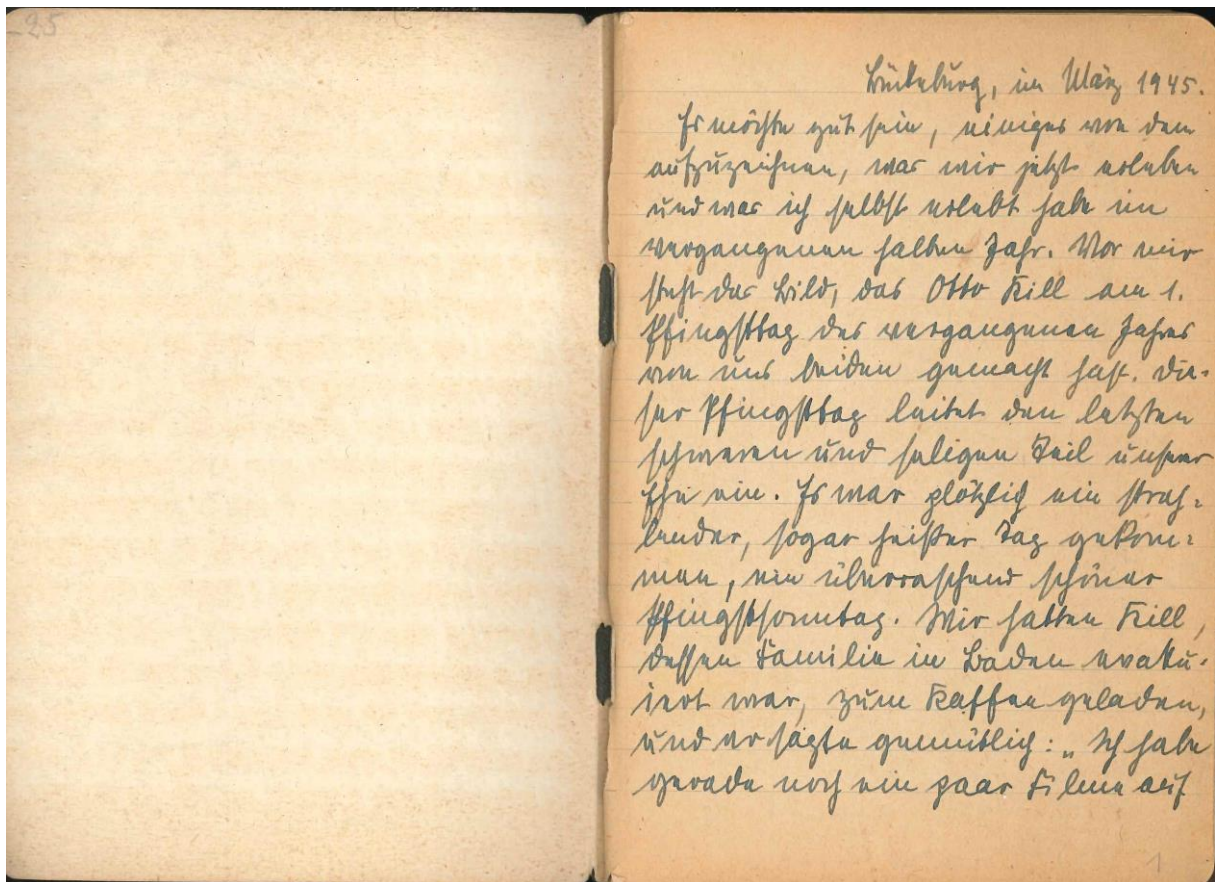 -25
Bückeburg, im März 1945.
Es möchte gut sein, einiges von dem
aufzuzeichnen, was wir jetzt erleben
und was ich selbst erlebt habe im
vergangenen halben Jahr. Vor mir
steht das Bild, das Otto Kill am 1.
Pfingsttag des vergangenen Jahres
von uns beiden gemacht hat. Die-
ser Pfingsttag leitet den letzten
schweren und seligen Teil unserer
Ehe ein. Es war plötzlich ein strah-
lender, sogar heißer Tag gekom-
men, ein überraschend schöner
Pfingstsonntag. Wir hatten Kill,
dessen Familie in Baden evaku-
iert war, zum Kaffee geladen,
und er sagte gemütlich: „Ich habe
gerade noch ein paar Filme auf
1